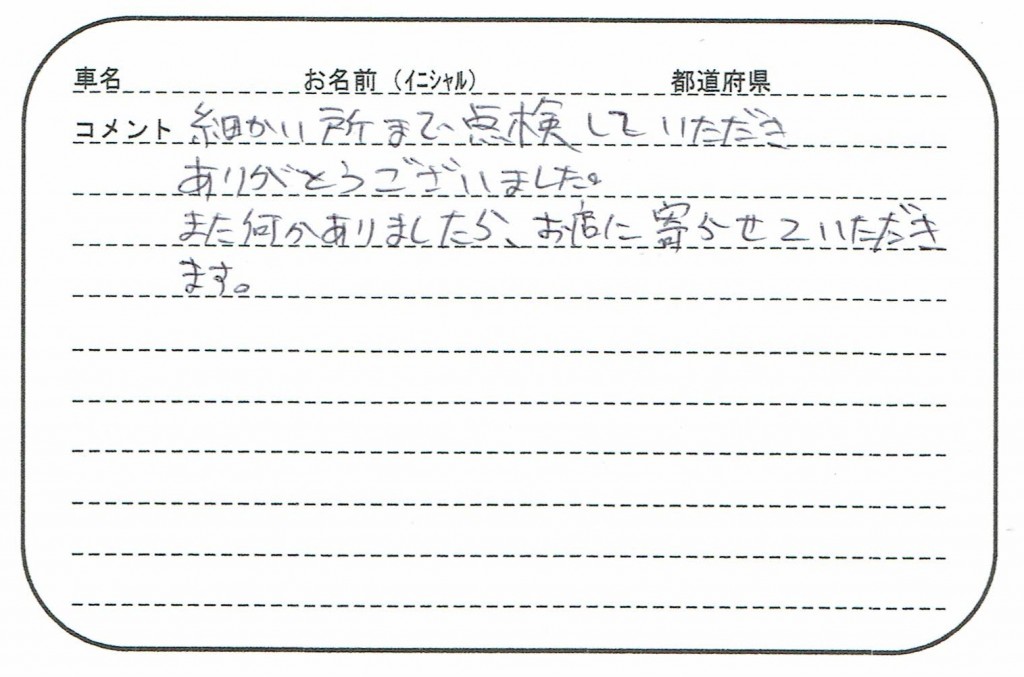 車名 お名前（ｲﾆｼｬﾙ） 都道府県
コメント 細かい所まで点検していただき
ありがとうございました。
また何かありましたら、お店に寄らせていただき
ます。